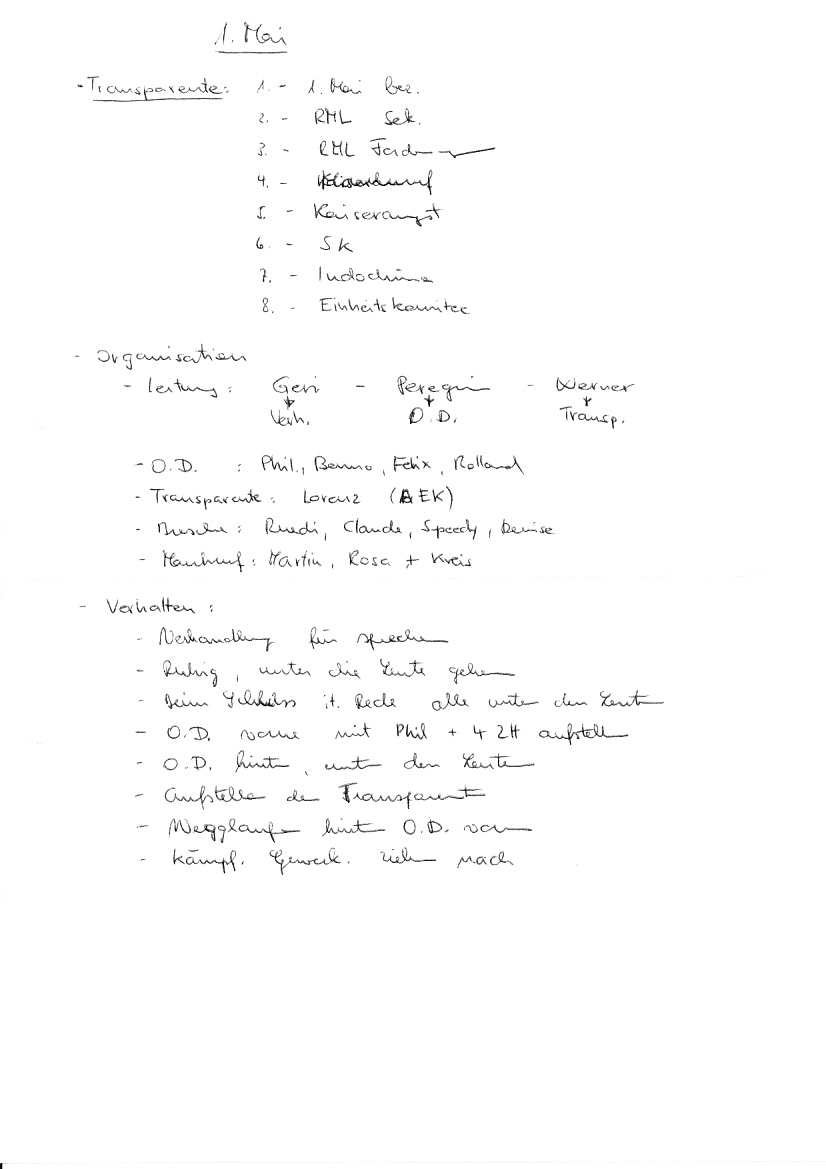 1. Mai
- Transparente: 1. - 1. Mai
2. - RML Sek.
3. - RML
4. -
5. - Kaiseraugst
6. - SK
7. - Indochina
8. - Einheitskomitee
- Organisation
- Leitung: Geri - Peregrin - Werner
Verh. O.D. Transp.
- O.D. : Phil., Benno, Felix, Rolland
- Transparente: Lorenz (AEK)
- : Ruedi, Claude, Speedy, Denise
- : Martin, Rosa + Kreis
- Verhalten:
- Verhandlung für sprechen
- Ruhig, unter die Leute gehen
- Beim it. Rede alle unter den Leuten
- O.D. vorne mit Phil + 4 2H aufstellen
- O.D. hinten, unter den Leuten
- Aufstellen der Transparente
- Wegglaufen hinter O.D. vorn
- Kämpf. Gewerk. ziehen nach